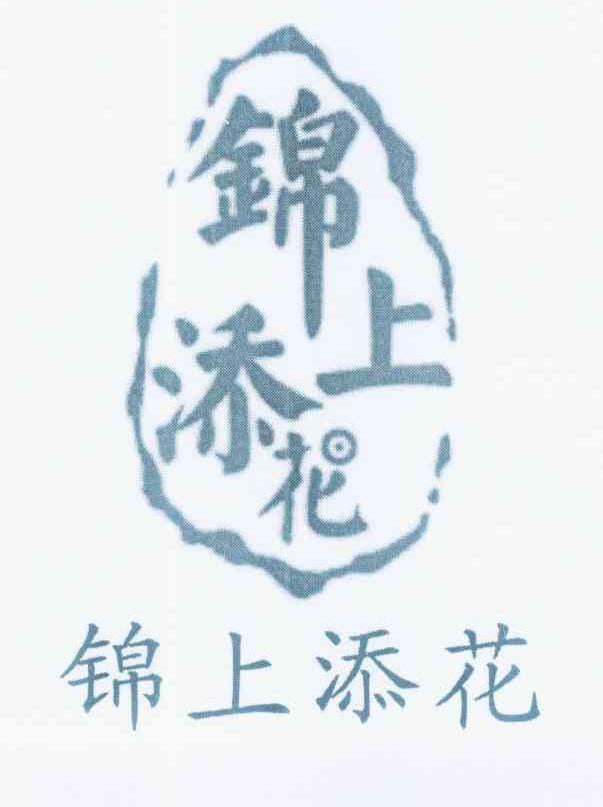 錦上添花
锦上添花